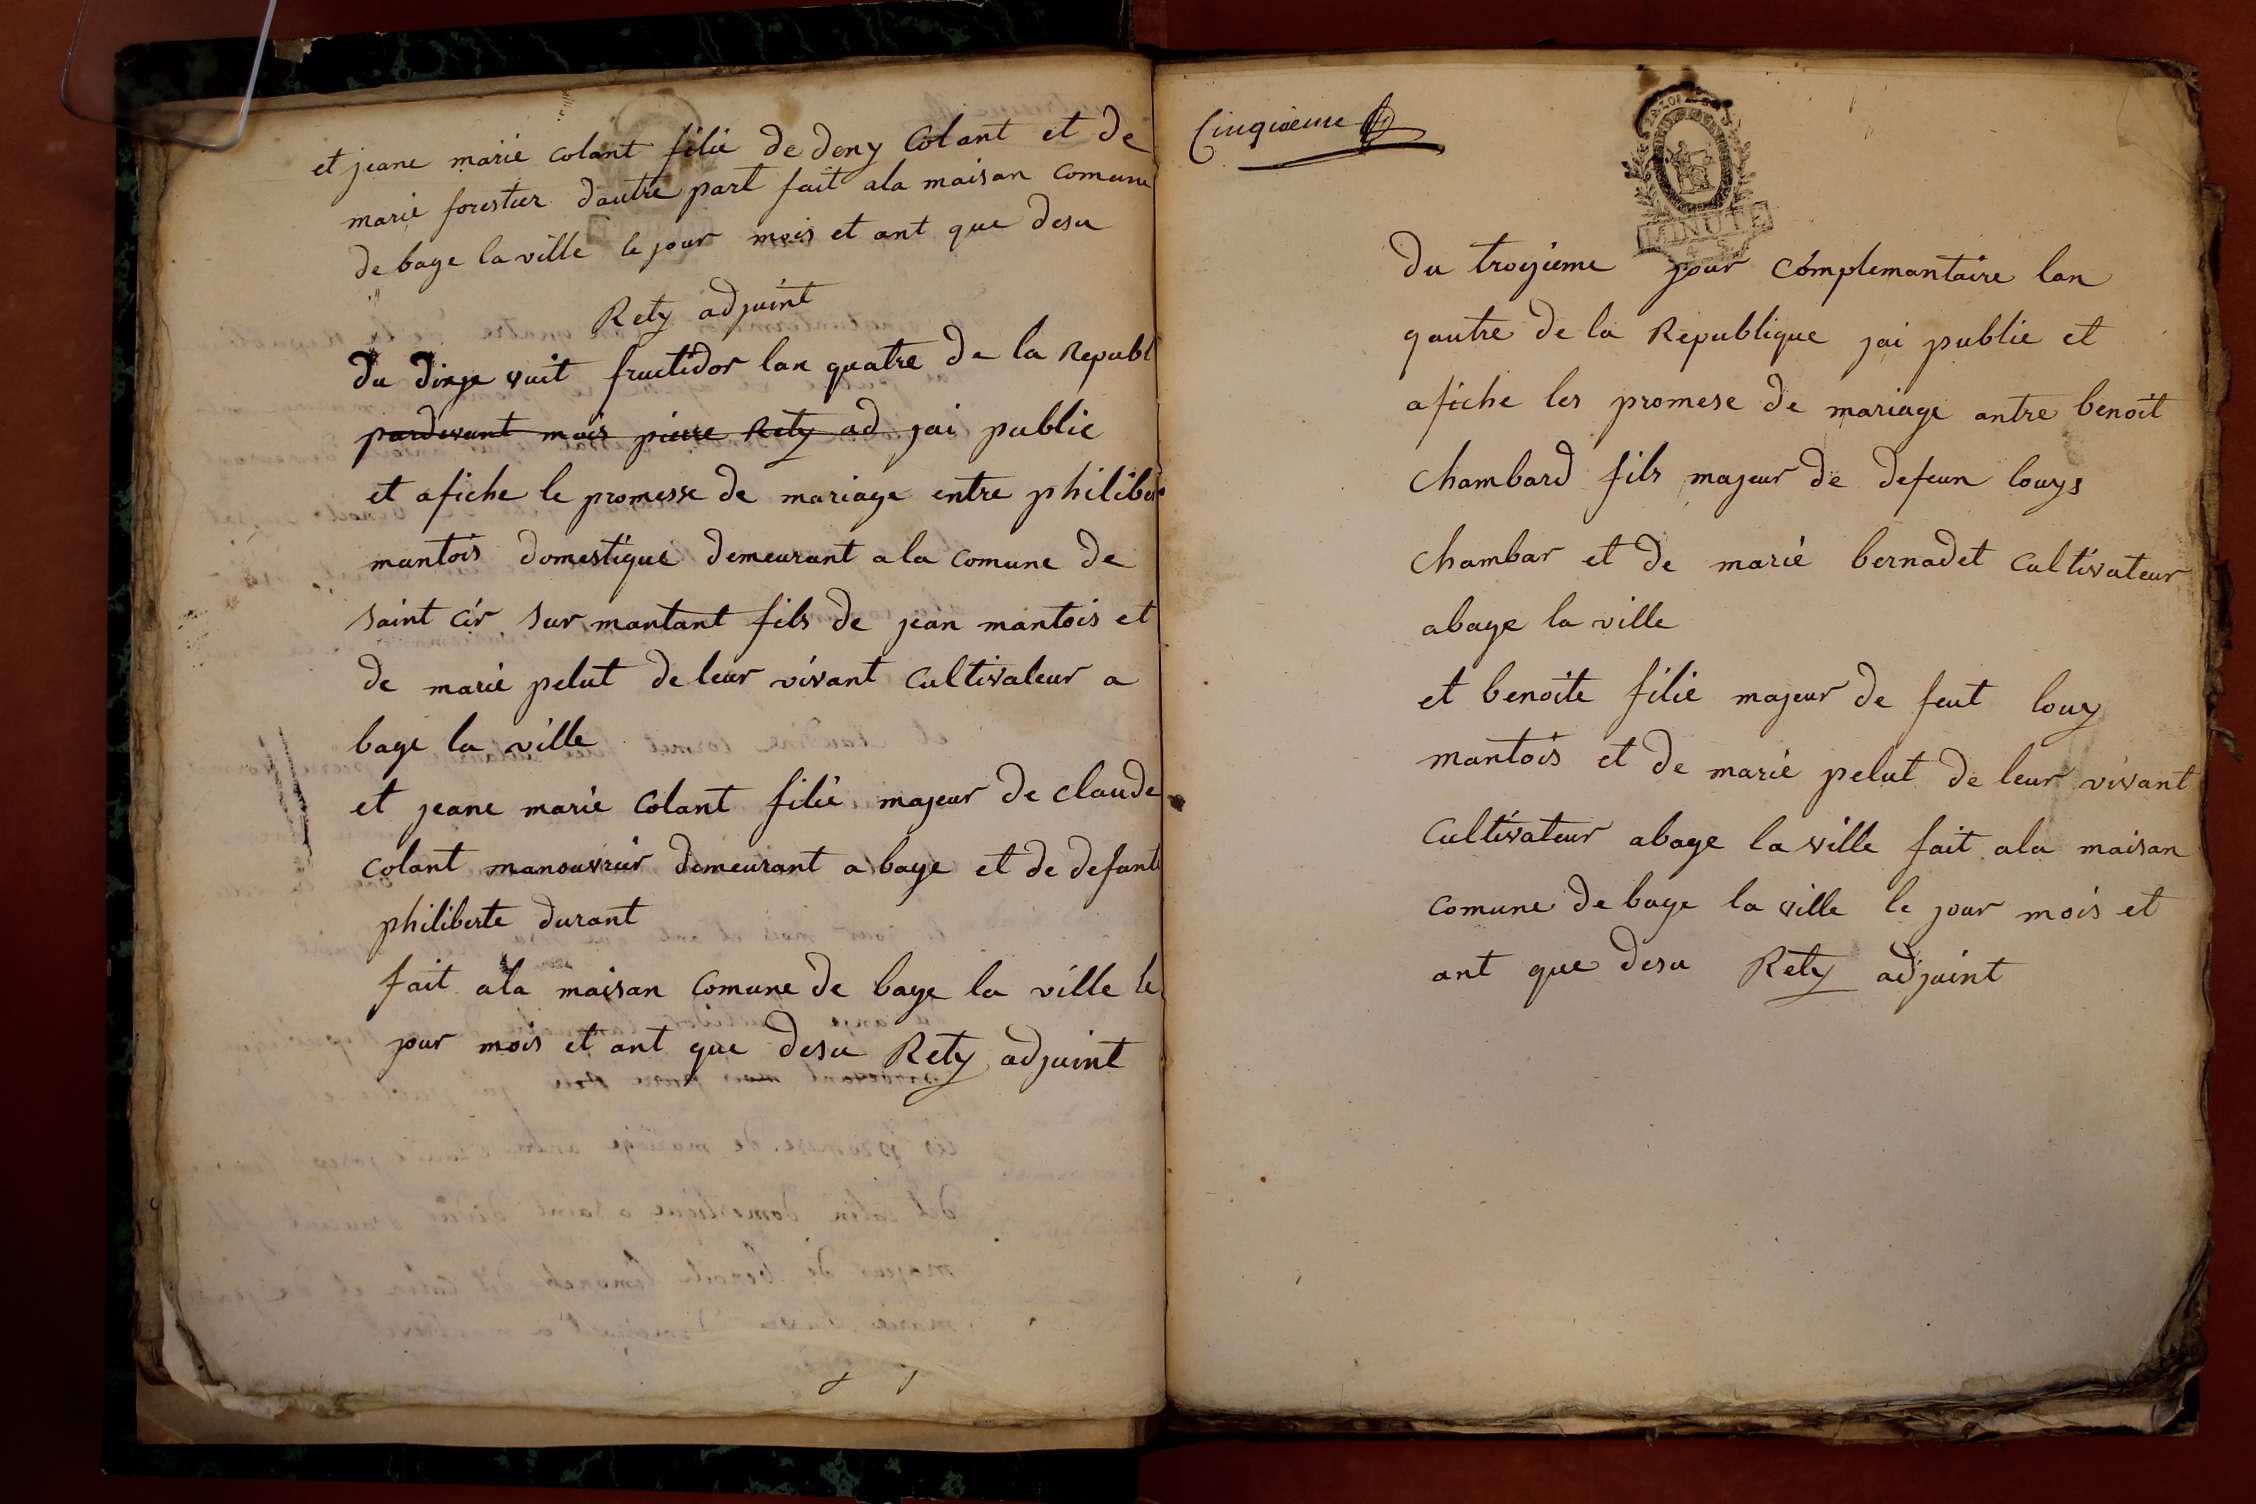 et jeane marie colant filie de deny Colant et de
marie forestier dautre part fait ala maison comune
de bage la ville le jour mois et ant que desu
Rety adjuint
du dirse vuit fructidor lan quatre de la Republ
pardevant mois pierre Rety ad jai publie
et afiche le promesse de mariage entre philiber
mantois domestique demeurant a la comune de
saint cir sur mantant fils de jean mantois et
de marie pelut de leur vivant cultivateur a
bage la ville
et jeane marie Colant filie majeur de claude
colant manouvrier demeurant a bage et de defunte
philiberte durant
fait ala maison Comune de bage la ville le
jour mois et ant que desu Rety adjuint
Cinquieme
MINUTE
du troisieme jour complemantaire lan
qautre de la Republique jai publie et
afiche les promese de mariage antre benoit
Chambard fils majeur de defeun louys
Chambar et de marie bernadet cultivateur
abage la ville
et benoite filie majeur de feut louy
mantois et de marie pelut de leur vivant
Cultivateur abage la ville fait ala maison
comune de bage la ville le jour mois et
ant que desu Rety adjuint